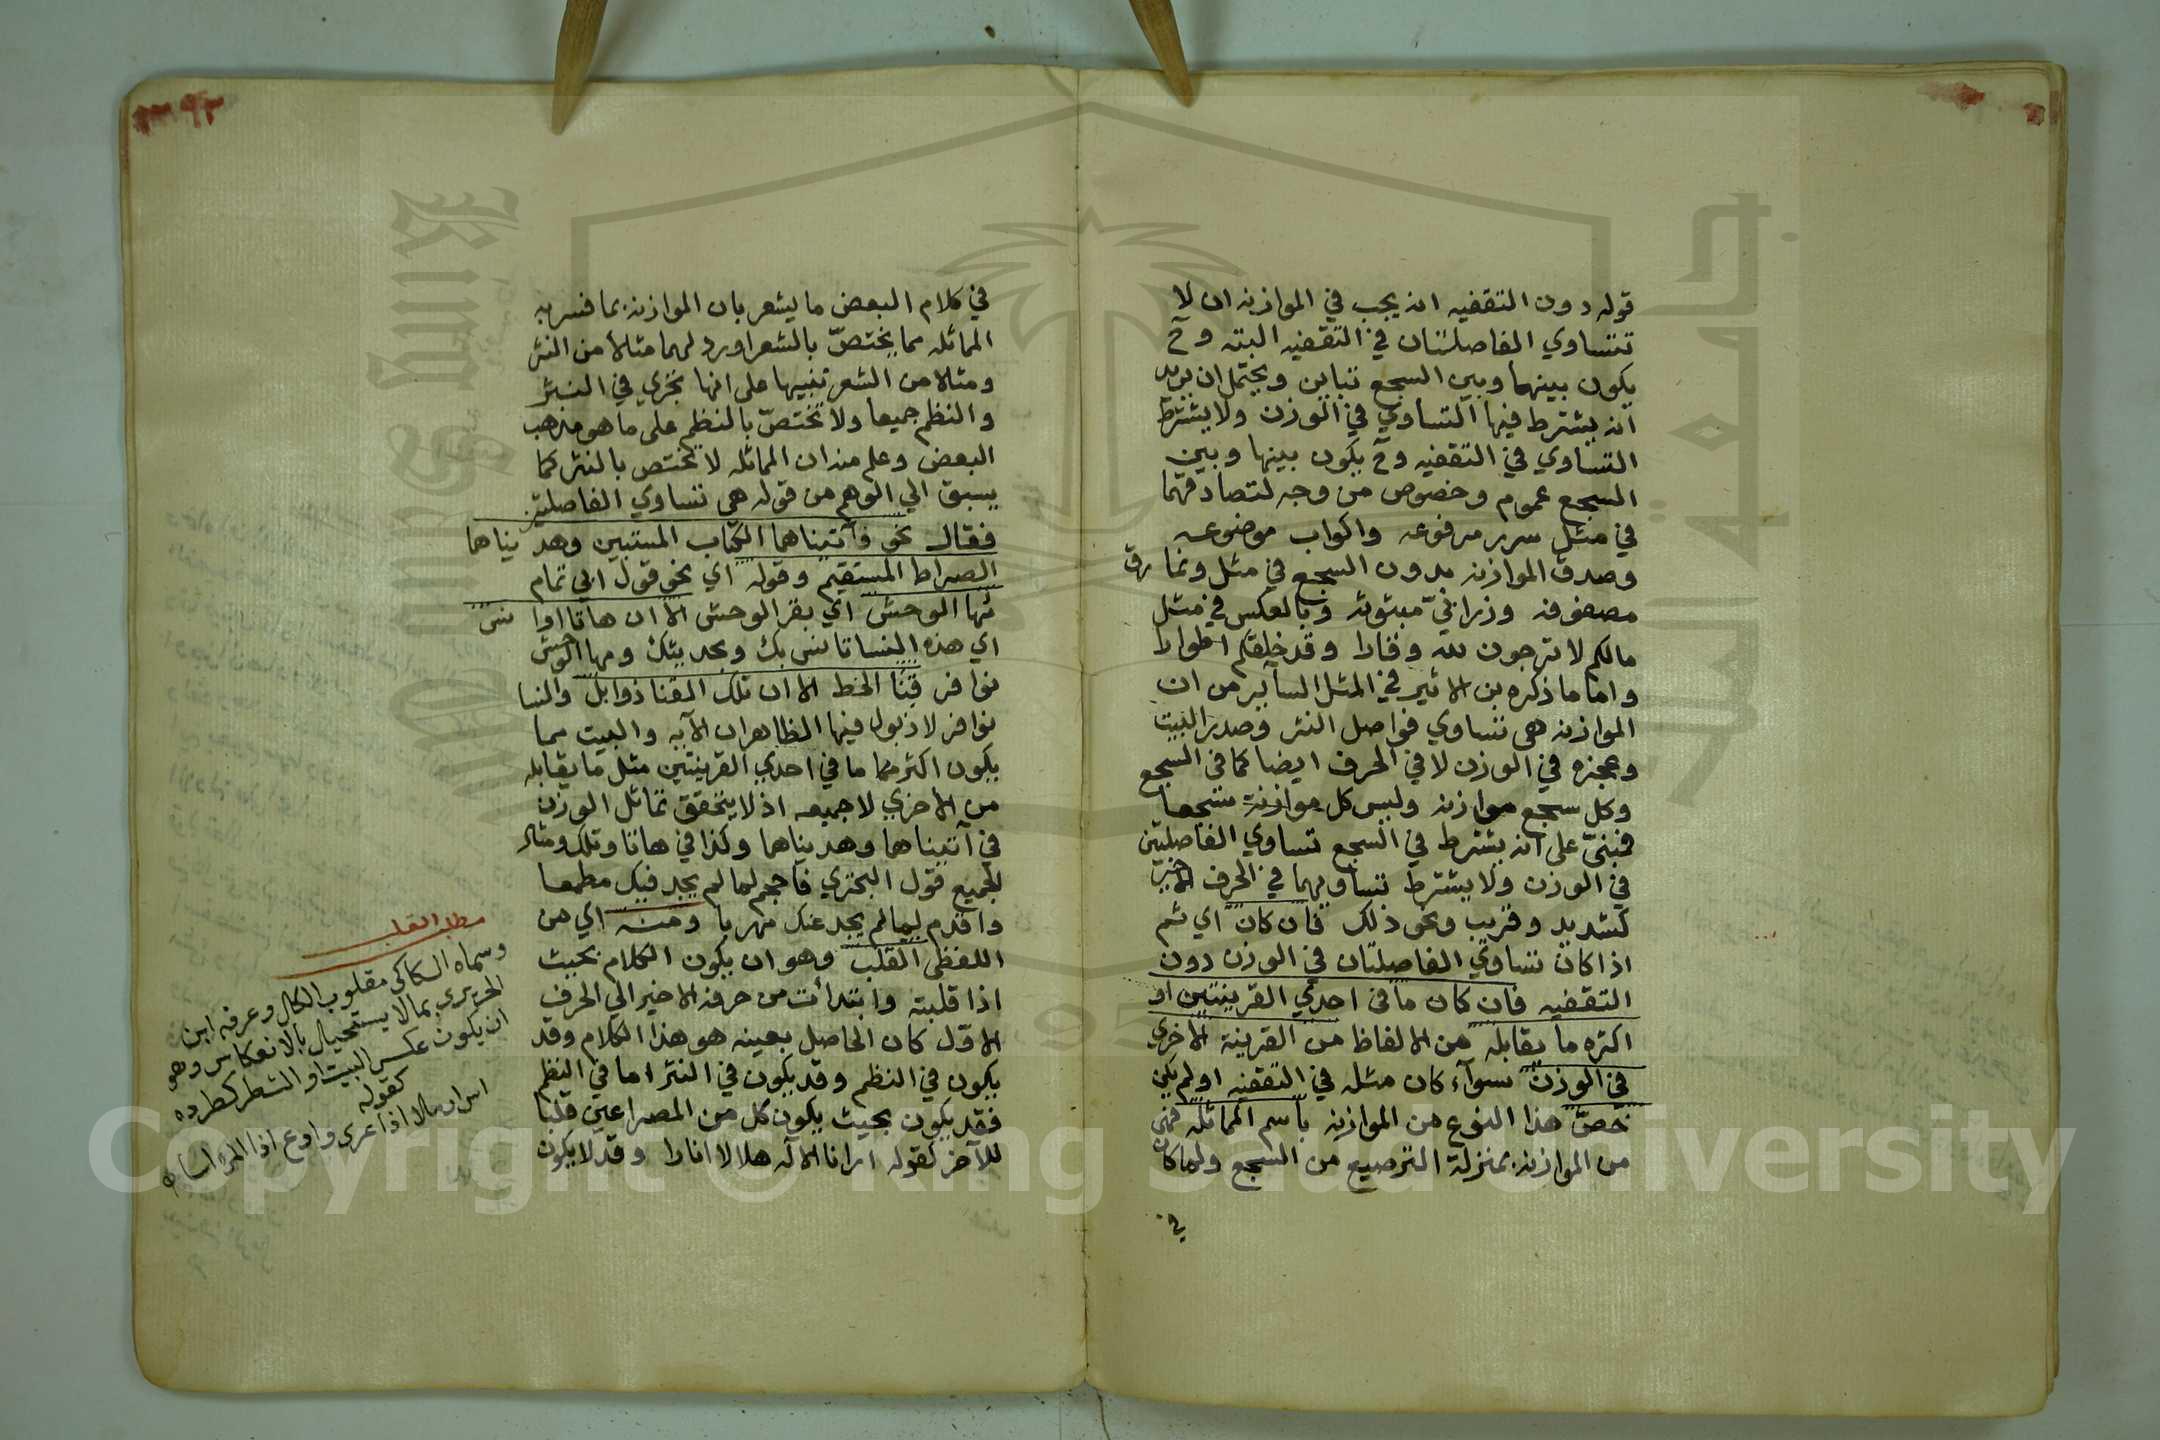 قوله دون التقفيه انه يجب في الموازنه ان لا
تتساوي الفاصلتان في التقفيه البته وح
يكون بينهما وبين السجع تباين ويحتمل ان يريد
انه يشترط فيها التساوي في الوزن ولا يشترط
التساوي في التقفيه وح يكون بينها وبين
السجع عموم وخصوص من وجه لتصادقهما
في مثل سرر مرفوعه واكواب موضوعه
وصدق الموازنه بدون السجع في مثل ونمارق
مصفوفه وزرابيّ مبثوثه وبالعكس في مثل
مالكم لا ترجون لله وقارا وقد خلقكم اطوارا
واما ما ذكره بن الاثير في المثل الساير من ان
الموازنه هي تساوي فواصل النثر وصدر البيت
وعجزه في الوزن لا في الحرف ايضا كما في السجع
وكل سجع موازنه وليس كل موازنة سجعا
فبنيّ على انه يشترط في السجع تساوي الفاصلتين
في الوزن ولا يشترط تساويهما في الحرف الاخير
كشديد وقريب ونحو ذلك فان كان اي ثم
اذا كان تساوي الفاصلتان في الوزن دون
التقفيه فان كان ما في احدي القرينتين او
اكثره ما يقابله من الالفاظ من القرينة الاخري
في الوزن سوآء كان مثله في التقفيه او لم يكن
خصّ هذا النوع من الموازنه باسم المماثله فهي
من الموازنه بمنزلة الترصيع من السجع ولما كان
في
في كلام البعض ما يشعر بان الموازنه بما فسر به
المماثله مما يختصّ بالشعر اورد لهما مثالا من النثر
ومثالا من الشعر تنبيها على انها تجري في النثر
والنظم جميعا ولا تختصّ بالنظم على ما هو مذهب
البعض وعلم منه ان المماثله لا تختص بالنثر كما
يسبق الي الوهم من قوله هي تساوي الفاصلتين
فقال نحو وآتيناهما الكتاب المستبين وهديناهما
الصراط المستقيم وقوله اي نحو قول ابي تمام
مها الوحش اي بقر الوحش الا ان هاتا اوانس
اي هذه النسا تانس بك وبحديثك ومها الوحش
نوافر قنا الخط الا ان تلك القنا ذوابل والنسا
نوافر لا ذبول فيها الظاهر ان الآيه والبيت مما
يكون اكثر مما ما في احدي القرينتين مثل ما يقابله
من الاخري لا جميعه اذ لا يتحقق تماثل الوزن
في آتيناهما وهديناهما وكذا في هاتا وتلك ومثال
الجميع قول البحتري فاحجم لما لم يجد فيك مطمعا
واقدم لما لم يجد عنك مهربا ومنه اي من
اللفظي القلب وهو ان يكون الكلام بحيث
اذا قلبته وابتدأت من حرفه الاخير الي الحرف
الاوّل كان الحاصل بعينه هو هذا الكلام وقد
يكون في النظم وقد يكون في النثر اما في النظم
فقد يكون بحيث يكون كل من المصراعين قلبا
للآخر كقوله ارانا الاله هلالا انارا وقد لا يكون
مطلب القلب
وسماه السكاكي مقلوب الكل وعرفه ابن
الحريري بما لا يستحيل بالانعكاس وهو
ان يكون عكس البيت او الشطر كطرده
كقوله
اس ارملا اذا عرى وارع اذا المرء اسا
Copyright © King Saud University
King Saud University
جامعة الملك سعود
1957